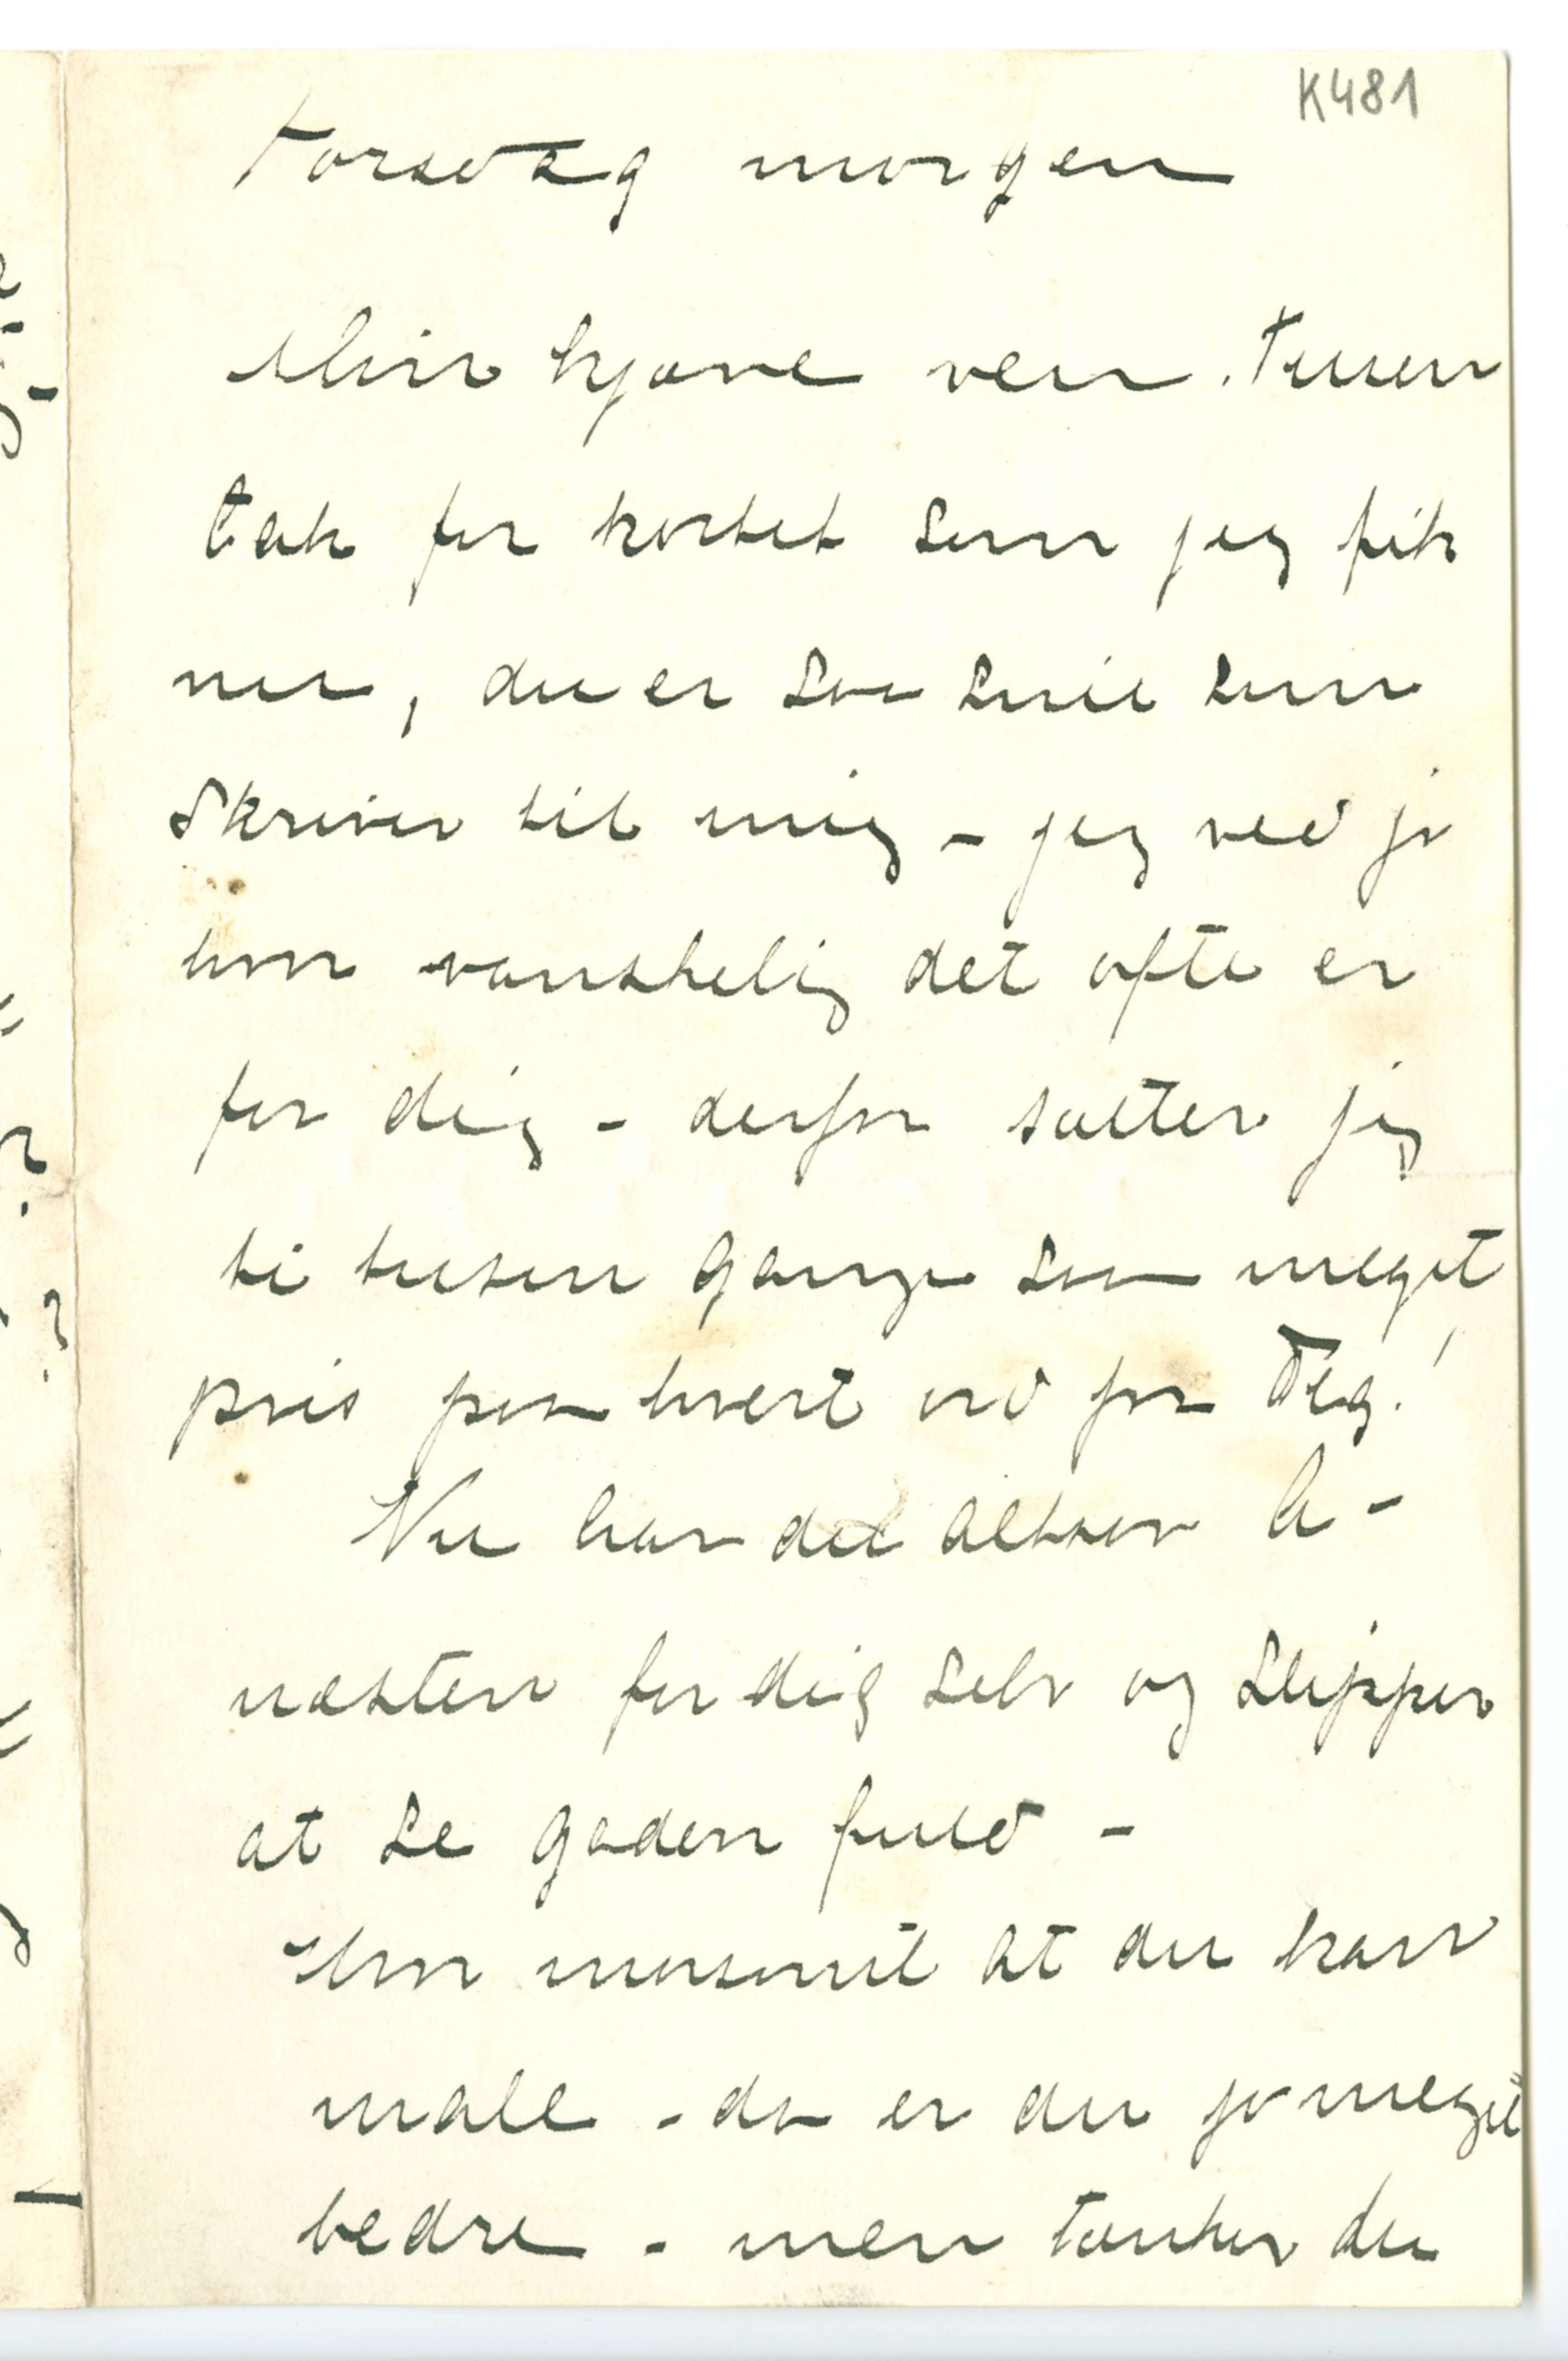 K481
Torsdag morgen
Min kjære ven. Tusen
tak for kortet som jeg fik
nu, du er saa snil som
skriver til mig – jeg ved jo
hvor vanskelig det ofte er
for dig – derfor sætter jeg
ti tusen gange saa meget
pris paa hvert ord fra Deg!
Nu har du altsaa b-
næsten for dig selv og slipper
at se gaden fuld –
Hvor morsomt at du kan
male – da er du jo meget
bedre – men tænker du